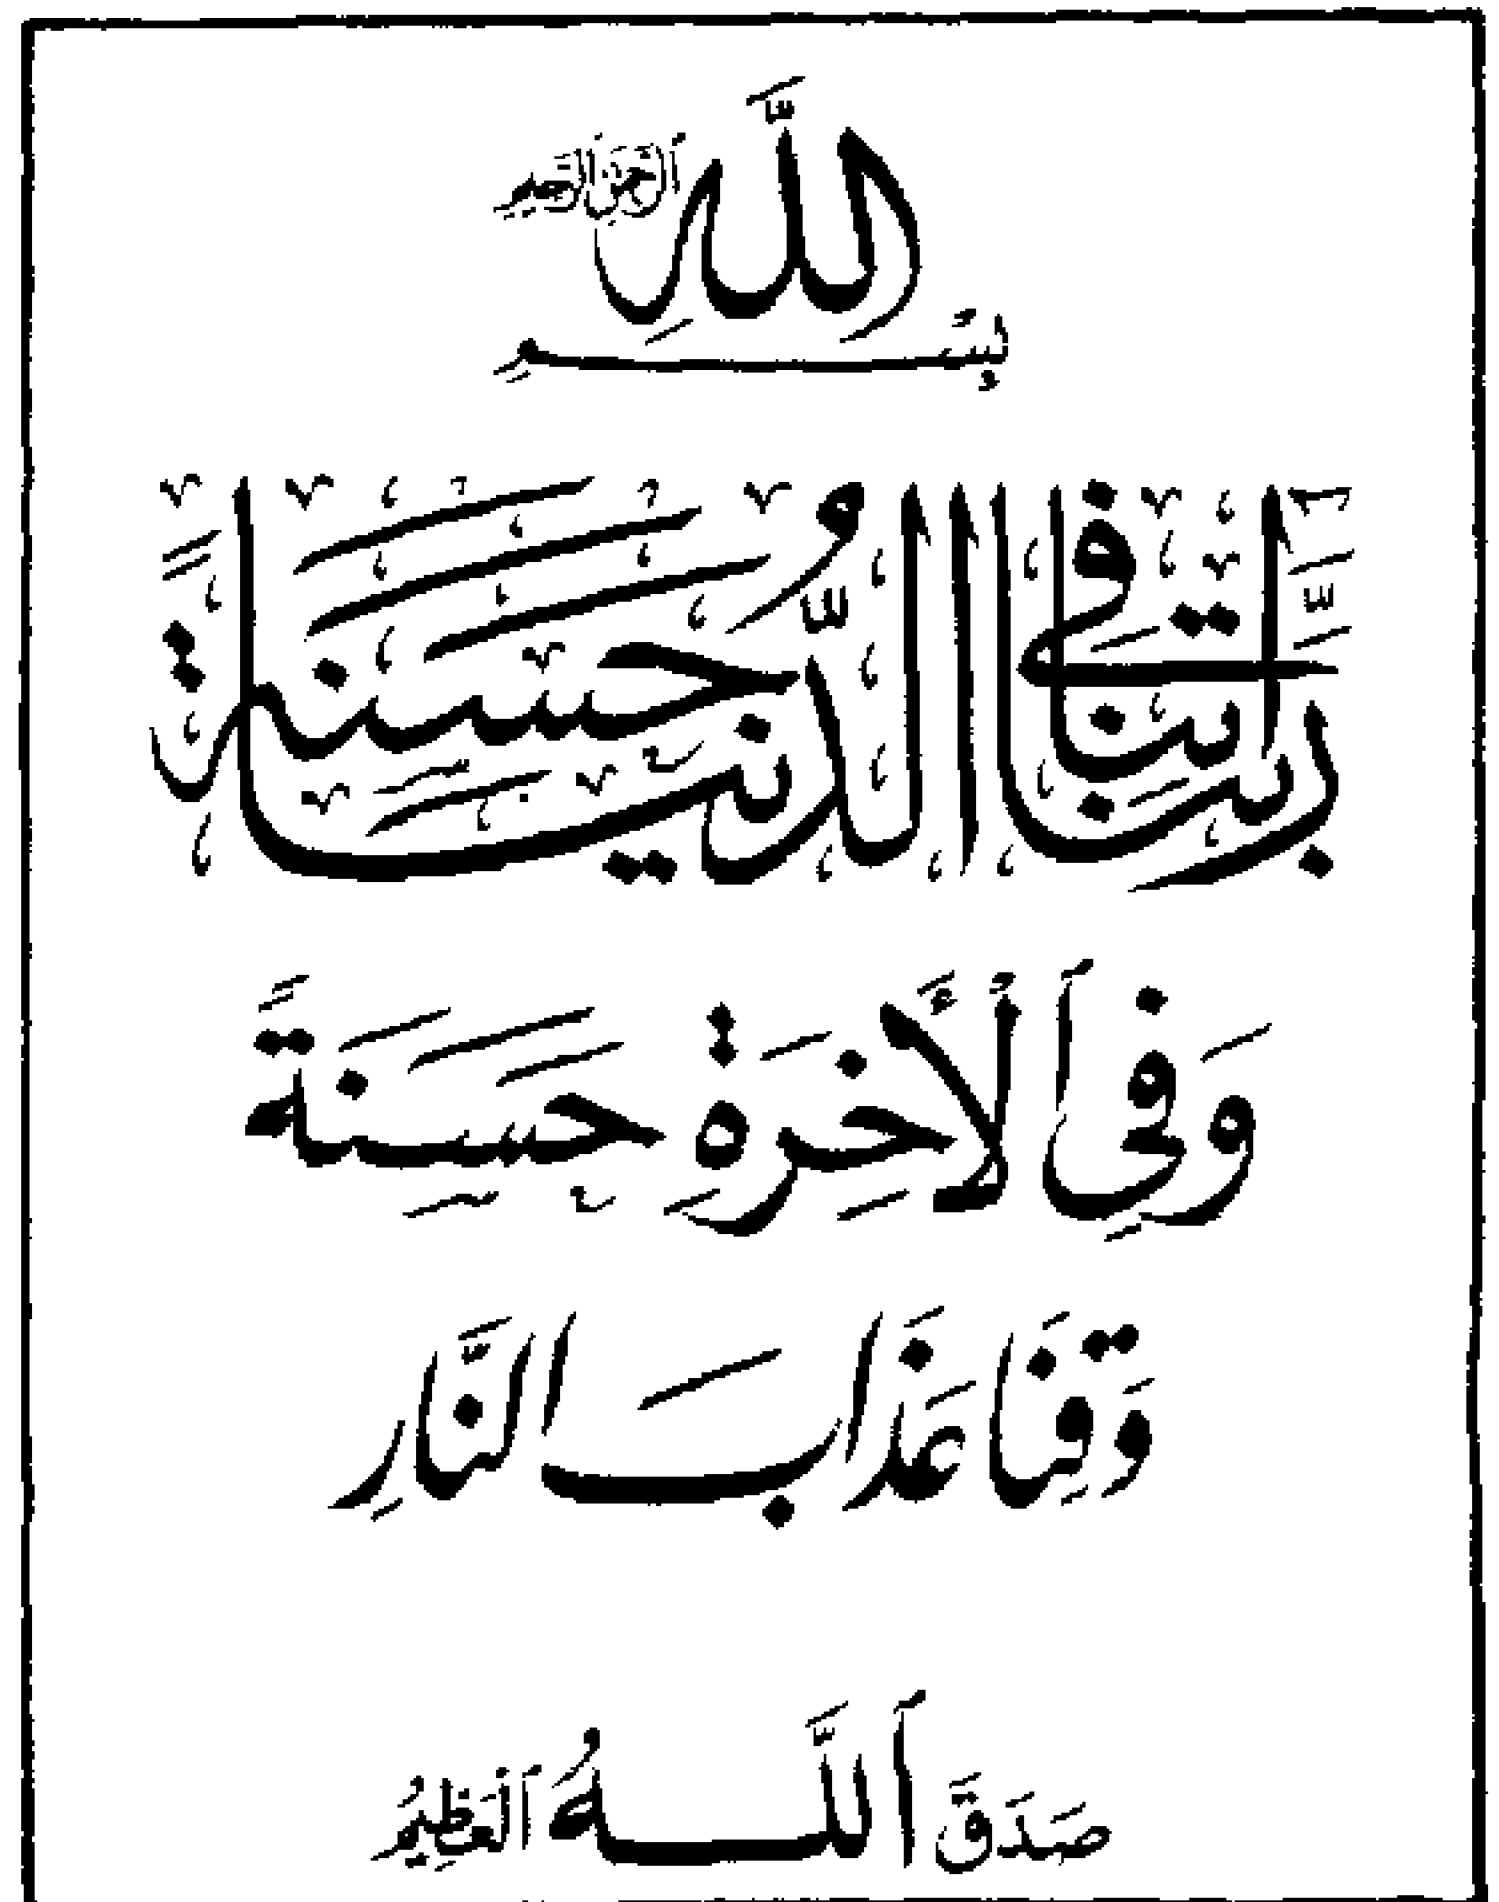 بِسْمِ اللَّهِ ٱلرَّحْمَنِ ٱلرَّحِيمِ
رَبَّنَا آتِنَا فِي الدُّنْيَا حَسَنَةً
وَفِي ٱلْأَخِرَةِ حَسَنَةً
وَقِنَا عَذَابَ النَّارِ
صَدَقَ ٱللَّهُ ٱلْعَظِيمُ